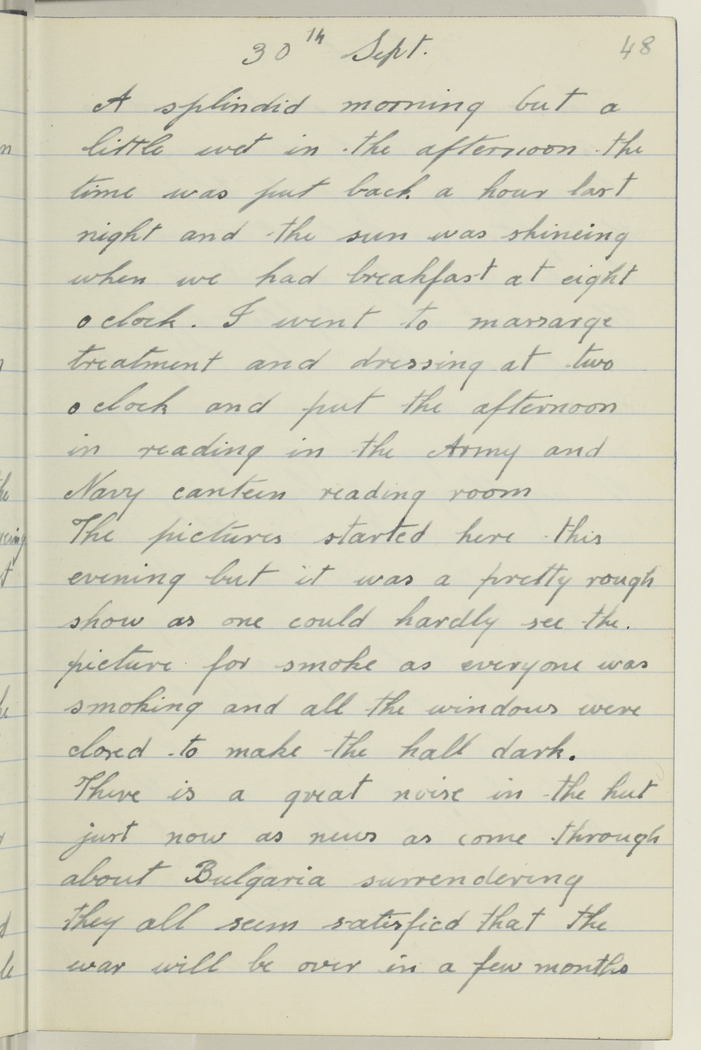 48
30th Sept.
A splindid morning but a
little wet in the afternoon the
time was put back a hour last
night and the sun was shineing
when we had breakfast at eight
o clock. I went to marsarge
treatment and dressing at two
o clock and put the afternoon
in reading in the Army and
Navy canteen reading room
The pictures started here this
evening but it was a pretty rough
show as one could hardly see the.
picture for smoke as everyone was
smoking and all the windows were
closed to make the hall dark.
There is a great noise in the hut
just now as news as come through
about Bulgaria surrendering
they all seem satisfied that the
war will be over in a few months